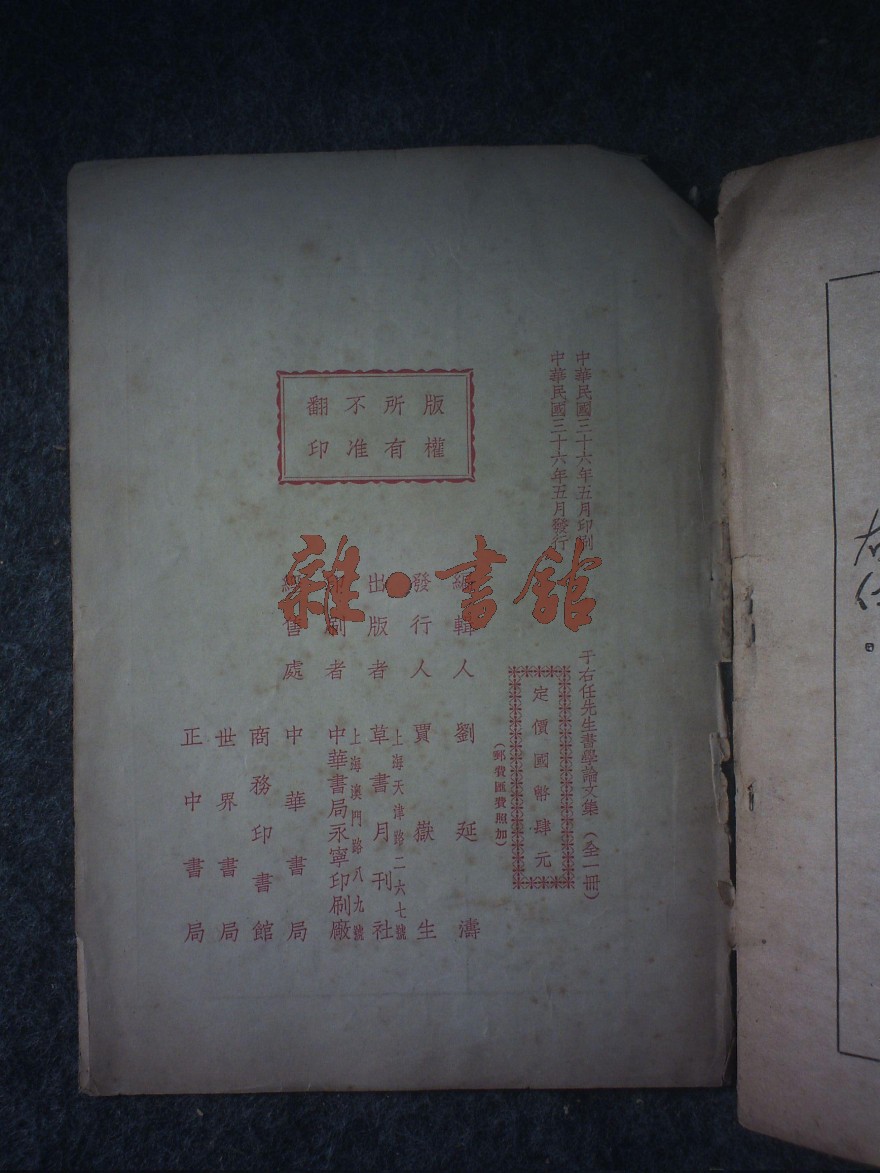 中華民國三十六年五月印刷
中華民國三十六年五月發行
于右任先生書學論文集（全一冊）
定價國幣肆元
（郵費匯費照加）
版權所有不准翻印
編輯人 劉延濤
發行人 賈嶽生
出版者 草書月刊社
上海天津路二六七號
印刷者 中華書局永寧印刷廠
上海澳門路八九號
售處 中華書局
商務印書館
世界書局
正中書局
雜·書館